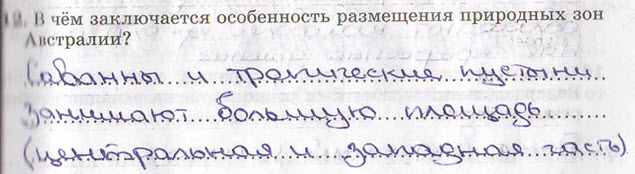 12. В чём заключается особенность размещения природных зон
Австралии?
Саванны и тропические пустыни
Занимают большую площадь
(центральная и западная часть)